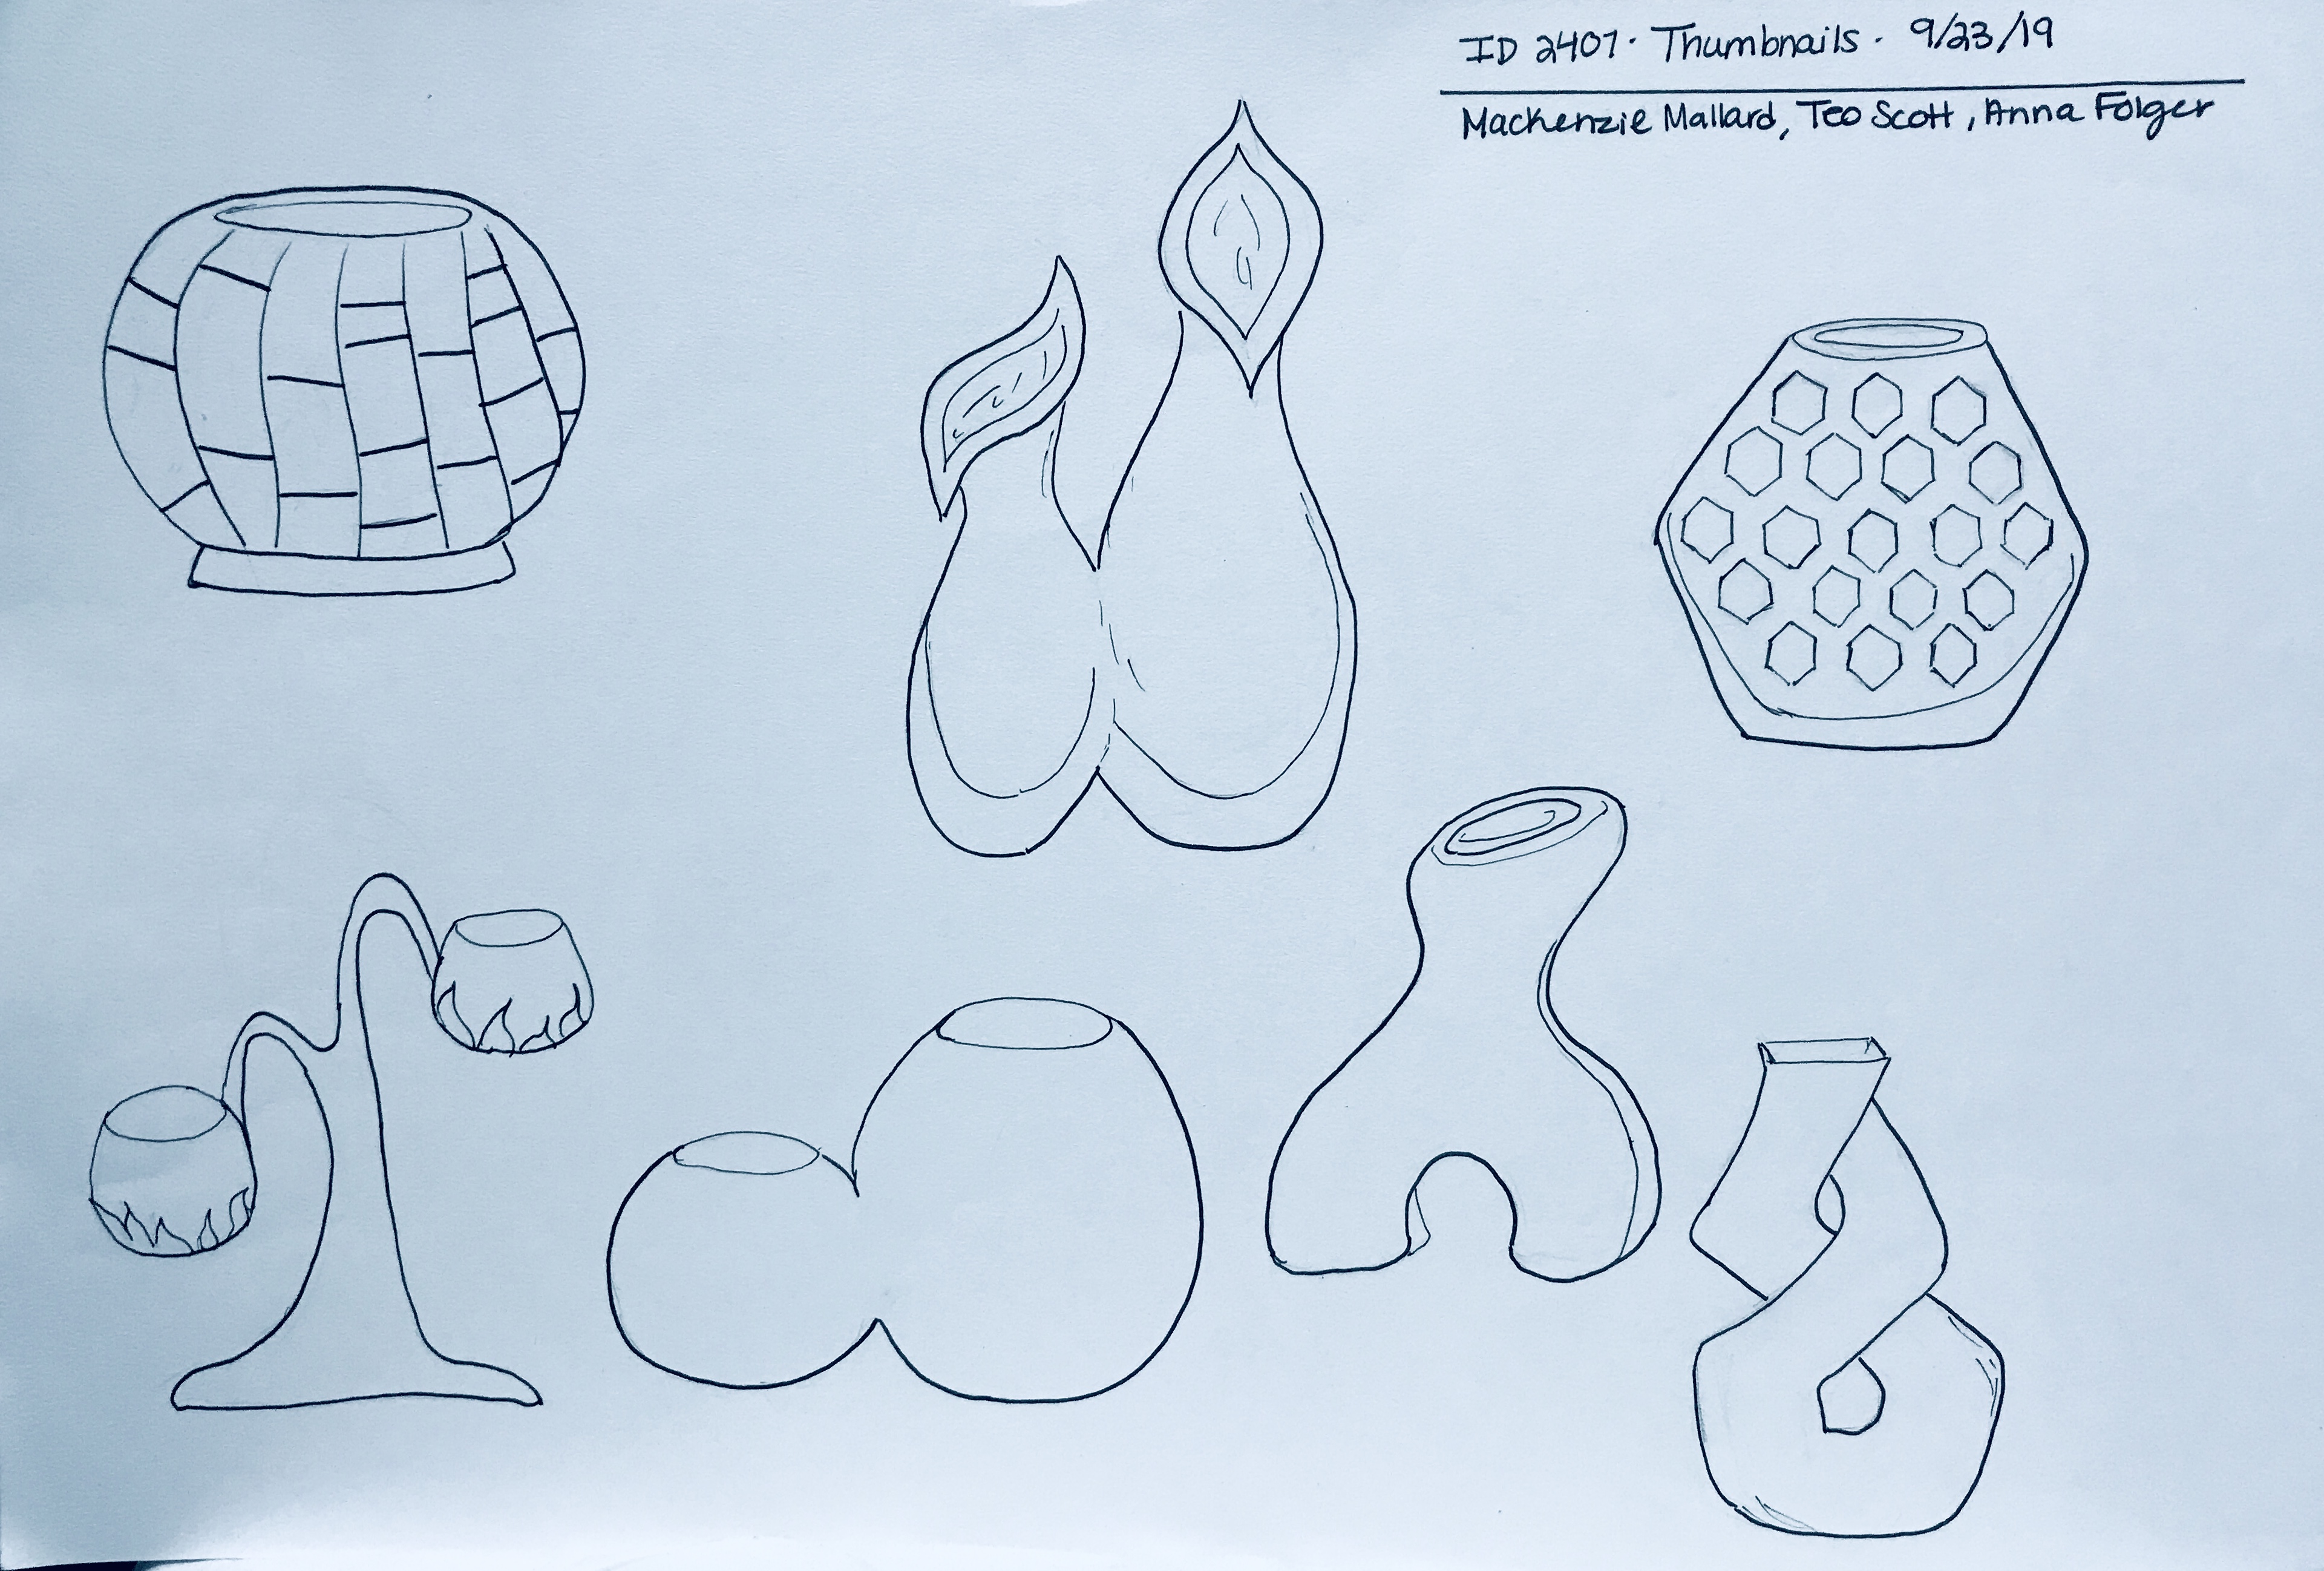 ID 2401 · Thumbnails · 9/23/19
Mackenzie Mallard, Teo Scott, Anna Folger